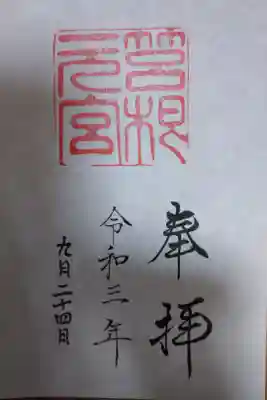 筥根
元宮
奉拝
令和三年
九月二十四日